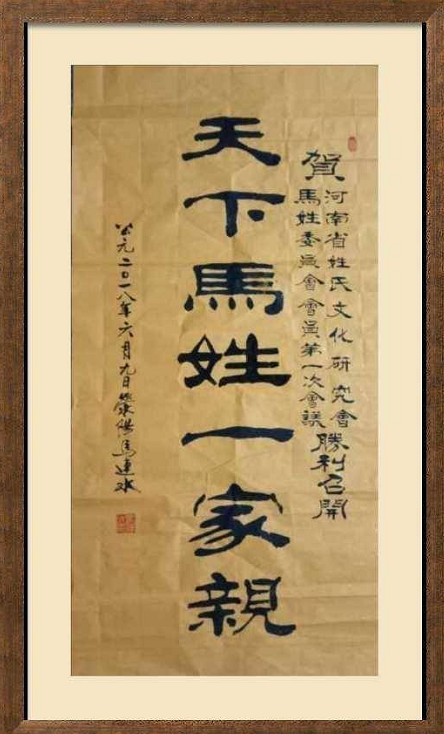 賀
河南省姓氏文化研究會
馬姓委員會會員第一次會議
勝利召開
天下馬姓一家親
公元二〇一八年六月九日滎陽馬連水